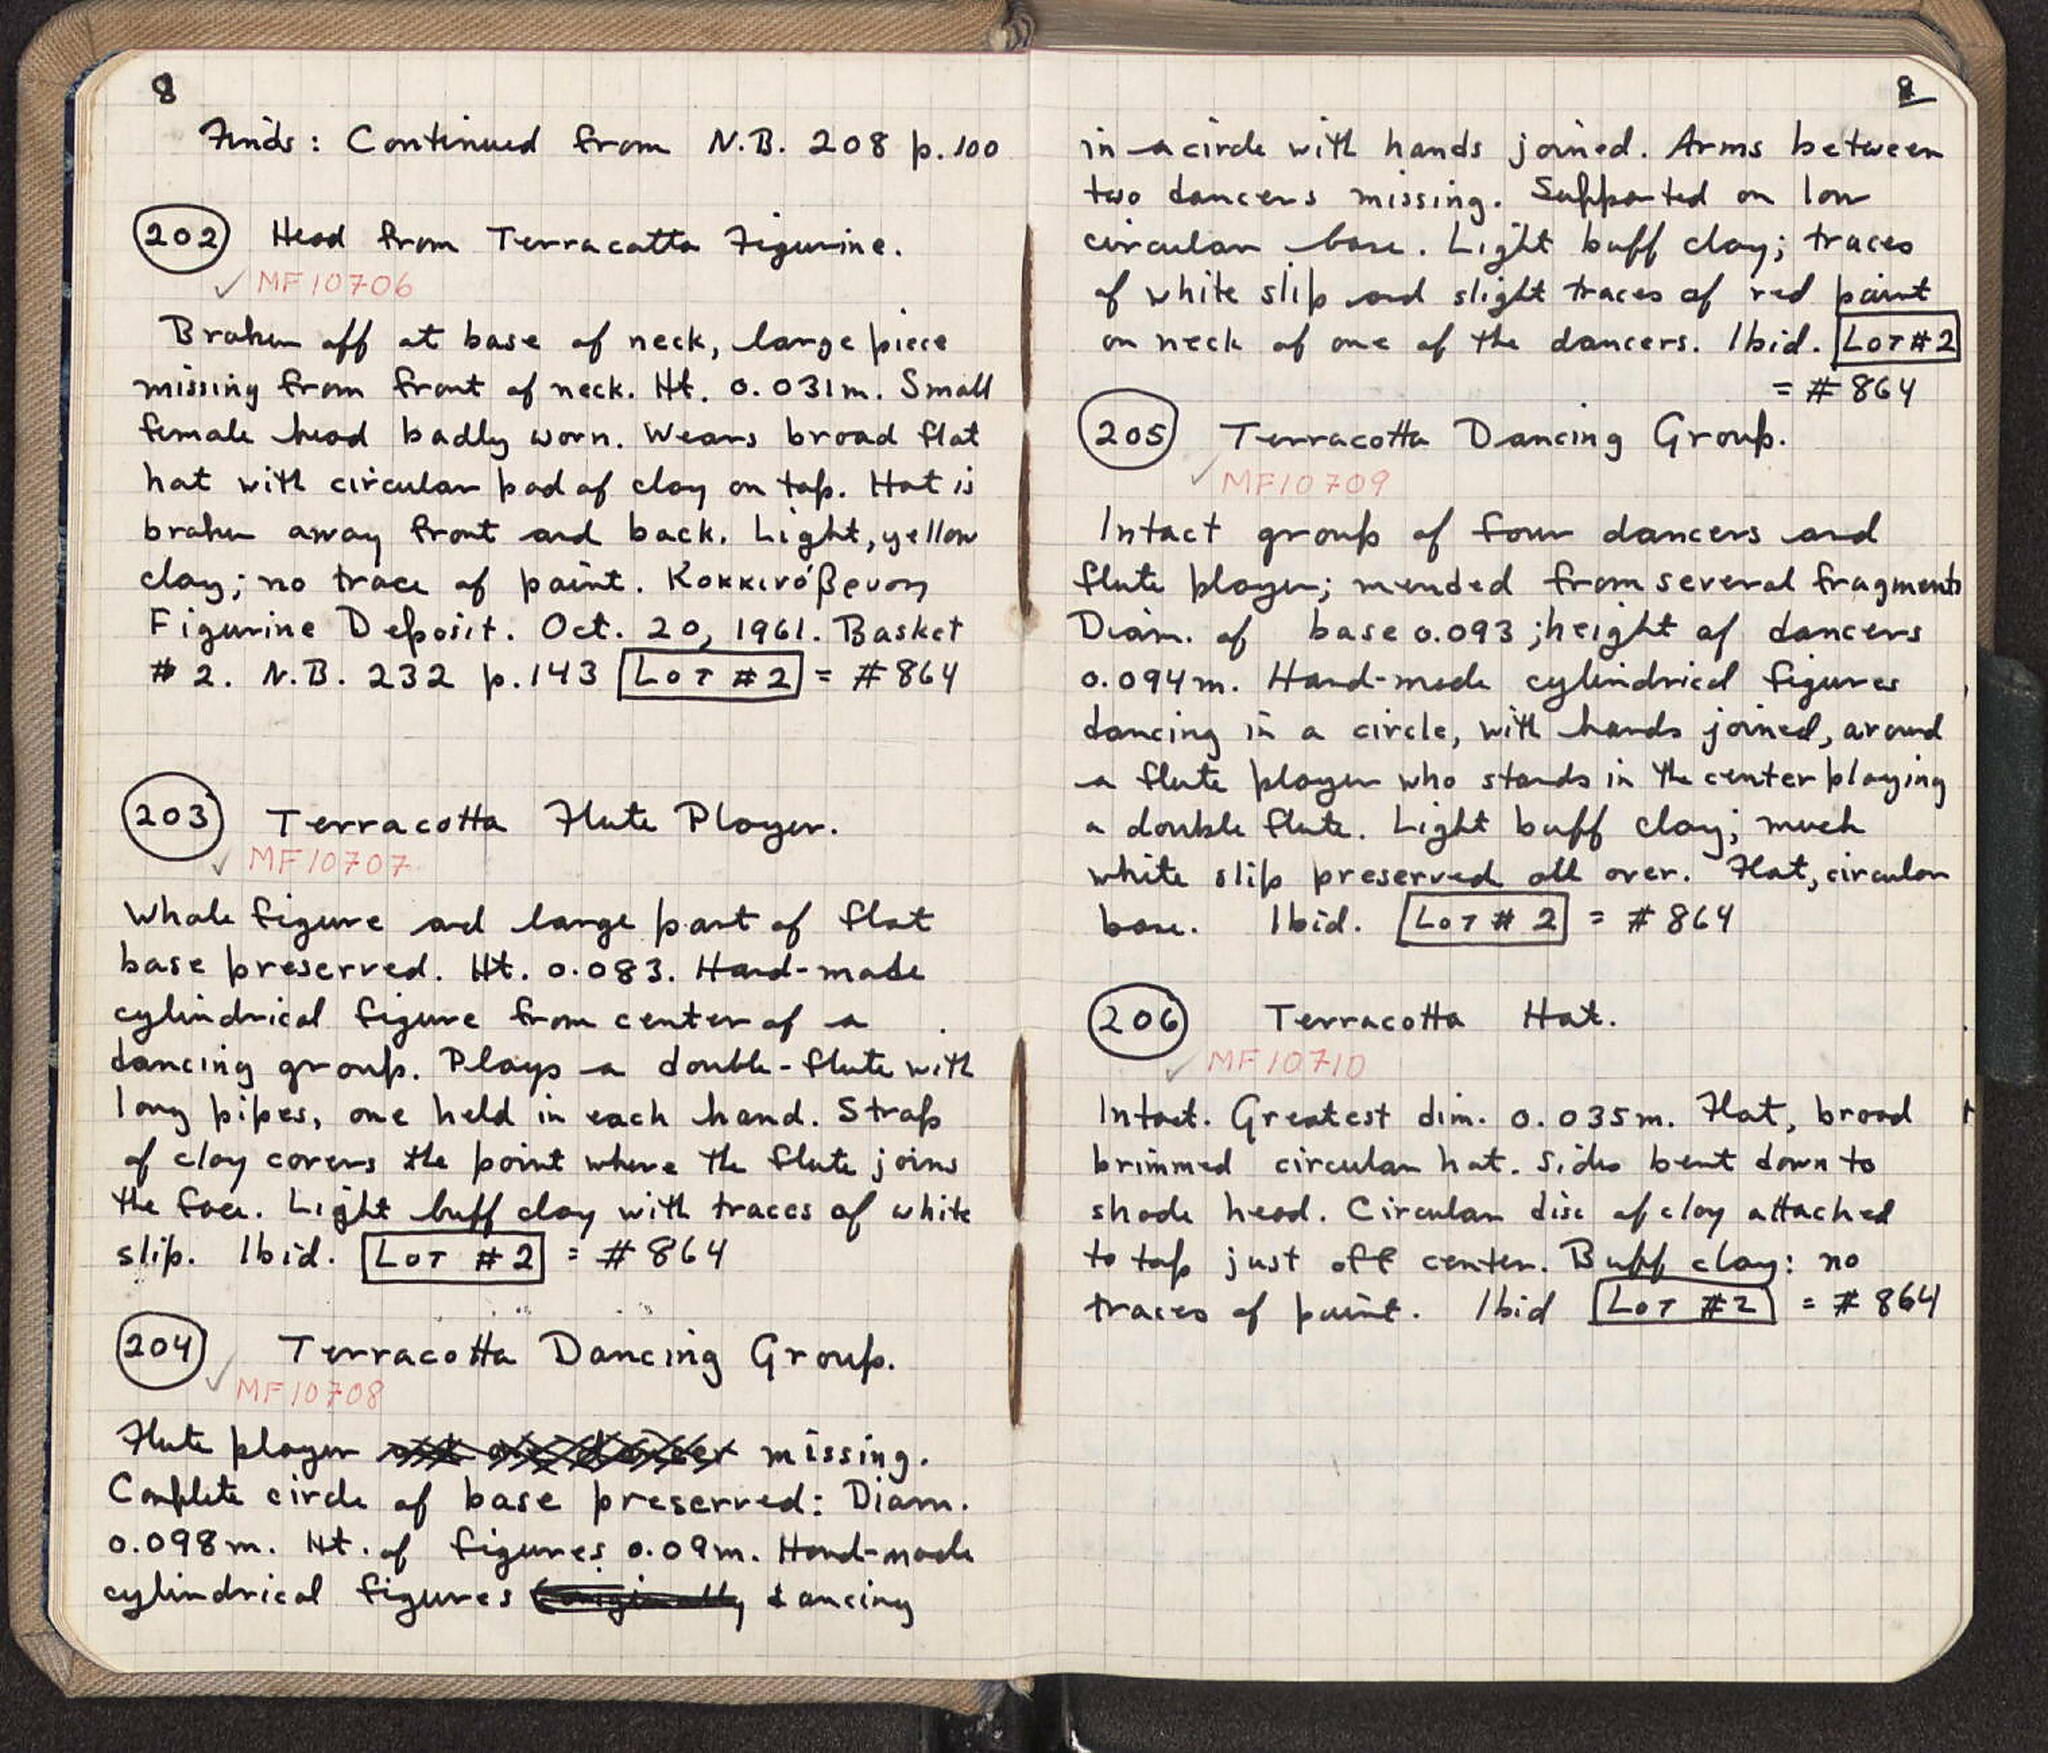 8
Finds: Continued from N.B. 208 p. 100
202 Head from Terracotta Figurine.
✓ MF10706
Broken off at base of neck, large piece
missing from front of neck. Ht. 0.031m. Small
female head badly worn. Wears broad flat
hat with circular pad of clay on top. Hat is
broken away front and back. Light, yellow
clay; no trace of paint. Κοκκινόβρυση
Figurine Deposit. Oct. 20, 1961. Basket
#2. N.B. 232 p. 143 Lot #2 = #864
203 Terracotta Flute Player.
✓ MF10707
Whole figure and large part of flat
base preserved. Ht. 0.083. Hand-made
cylindrical figure from center of a
dancing group. Plays a double-flute with
long pipes, one held in each hand. Strap
of clay covers the point where the flute joins
the face. Light buff clay with traces of white
slip. Ibid. Lot #2 = #864
204 Terracotta Dancing Group.
✓ MF10708
Flute player and one dancer missing.
Complete circle of base preserved: Diam.
0.098m. Ht. of figures 0.09m. Hand-made
cylindrical figures (originally dancing
8
in a circle with hands joined. Arms between
two dancers missing. Supported on low
circular base. Light buff clay; traces
of white slip and slight traces of red paint
on neck of one of the dancers. Ibid. Lot #2
= #864
205 Terracotta Dancing Group.
✓ MF10709
Intact group of four dancers and
flute player; mended from several fragments
Diam. of base 0.093; height of dancers
0.094m. Hand-made cylindrical figures
dancing in a circle, with hands joined, around
a flute player who stands in the center playing
a double flute. Light buff clay; much
white slip preserved all over. Flat, circular
base. Ibid. Lot #2 = #864
206 Terracotta Hat.
✓ MF10710
Intact. Greatest dim. 0.035m. Flat, broad
brimmed circular hat. Sides bent down to
shade head. Circular disc of clay attached
to top just off center. Buff clay: no
traces of paint. Ibid Lot #2 = #864